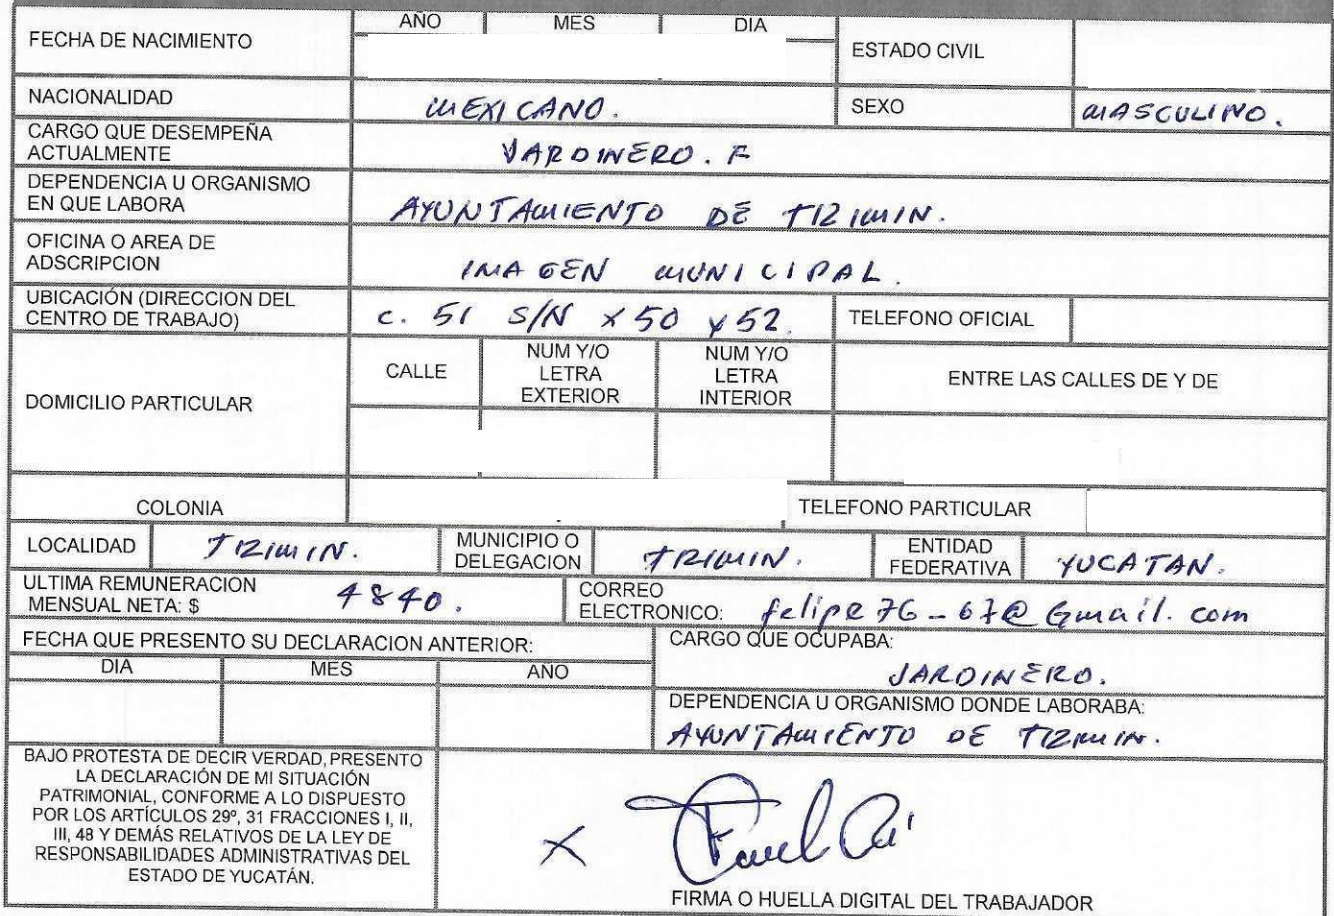 AÑO MES DIA
FECHA DE NACIMIENTO
ESTADO CIVIL
NACIONALIDAD MEXICANO. SEXO MASCULINO.
CARGO QUE DESEMPEÑA
ACTUALMENTE
JARDINERO. F
DEPENDENCIA U ORGANISMO
EN QUE LABORA
AYUNTAMIENTO DE TIZIMIN.
OFICINA O AREA DE
ADSCRIPCION
IMAGEN MUNICIPAL.
UBICACIÓN (DIRECCION DEL
CENTRO DE TRABAJO)
C. 51 S/N x 50 y 52. TELEFONO OFICIAL
DOMICILIO PARTICULAR
CALLE
NUM Y/O
LETRA
EXTERIOR
NUM Y/O
LETRA
INTERIOR
ENTRE LAS CALLES DE Y DE
COLONIA TELEFONO PARTICULAR
LOCALIDAD TIZIMIN.
MUNICIPIO O
DELEGACION
TIZIMIN.
ENTIDAD
FEDERATIVA
YUCATAN.
ULTIMA REMUNERACION
MENSUAL NETA: $
4840.
CORREO
ELECTRONICO: felipe76-67@Gmail.com
FECHA QUE PRESENTO SU DECLARACION ANTERIOR:
DIA MES AÑO
CARGO QUE OCUPABA:
JARDINERO.
DEPENDENCIA U ORGANISMO DONDE LABORABA:
AYUNTAMIENTO DE TIZIMIN.
BAJO PROTESTA DE DECIR VERDAD, PRESENTO
LA DECLARACIÓN DE MI SITUACIÓN
PATRIMONIAL, CONFORME A LO DISPUESTO
POR LOS ARTÍCULOS 29º, 31 FRACCIONES I, II,
III, 48 Y DEMÁS RELATIVOS DE LA LEY DE
RESPONSABILIDADES ADMINISTRATIVAS DEL
ESTADO DE YUCATÁN.
X
FIRMA O HUELLA DIGITAL DEL TRABAJADOR